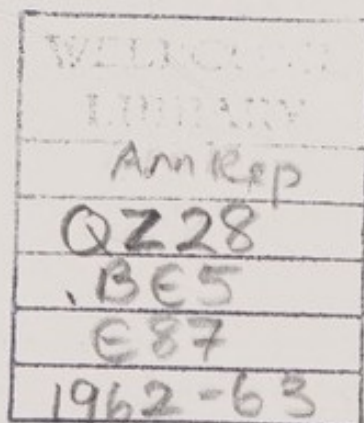 WELLCOME
LIBRARY
Ann Rep
QZ28
.BE5
E87
1962-63